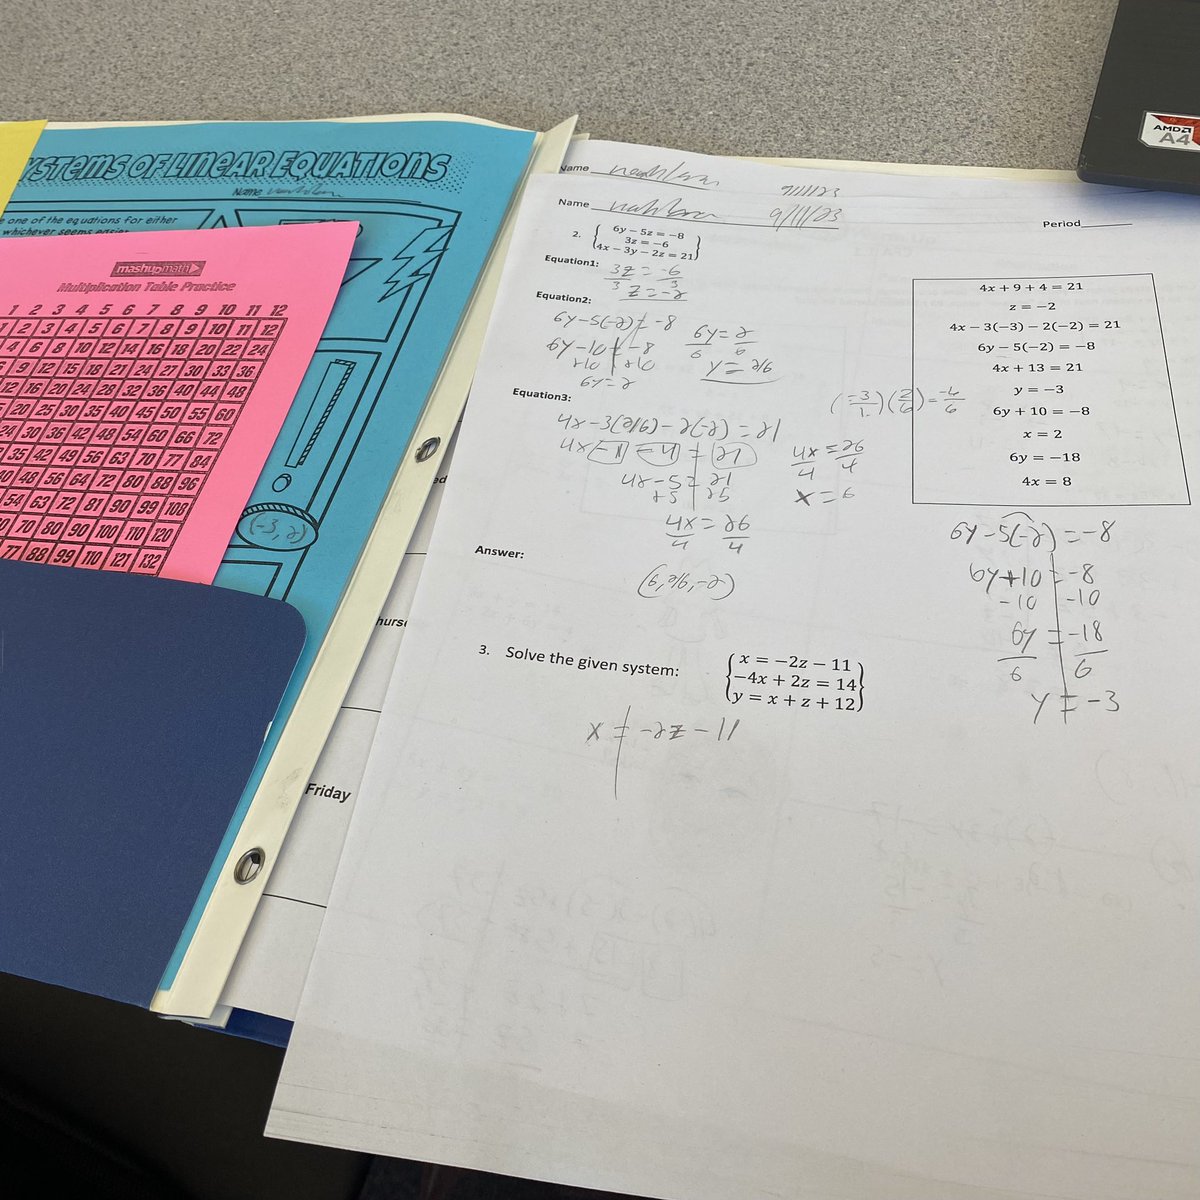 YSTEMS OF LINEAR EQUATIONS
Name
e one of the equations for either
whichever seems easier
mashupmath
Multiplication Table Practice
1 2 3 4 5 6 7 8 9 10 11 12
1 2 3 4 5 6 7 8 9 10 11 12
4 6 8 10 12 14 16 18 20 22 24
6 9 12 15 18 21 24 27 30 33 36
12 16 20 24 28 32 36 40 44 48
5 20 25 30 35 40 45 50 55 60
24 30 36 42 48 54 60 66 72
35 42 49 56 63 70 77 84
40 48 56 64 72 80 88 96
54 63 72 81 90 99 108
70 80 90 100 110 120
77 88 99 110 121 132
(-3, 2)
ed
hurs
Friday
AMD
A4
Name 9/11/23
Name 9/11/23
Period
2. 6y − 5z = −8
3z = −6
4x − 3y − 2z = 21
Equation1:
3z = -6
3 3
z = -2
Equation2:
6y-5(-2) = -8
6y-10 = -8
+10 +10
6y = 2
6y = 2
6 6
y = 2/6
Equation3:
4x-3(2/6)-2(-2) = 21
4x -1 -4 = 21
4x-5 = 21
+5 25
4x = 26
4 4
(-3/1)(2/6) = -6/6
4x = 26
4 4
x = 6
Answer:
(6, 2/6, -2)
4x + 9 + 4 = 21
z = −2
4x − 3(−3) − 2(−2) = 21
6y − 5(−2) = −8
4x + 13 = 21
y = −3
6y + 10 = −8
x = 2
6y = −18
4x = 8
6y-5(-2) = -8
6y+10 = -8
-10 -10
6y = -18
6 6
y = -3
3. Solve the given system:
x = −2z − 11
−4x + 2z = 14
y = x + z + 12
x = -2z - 11